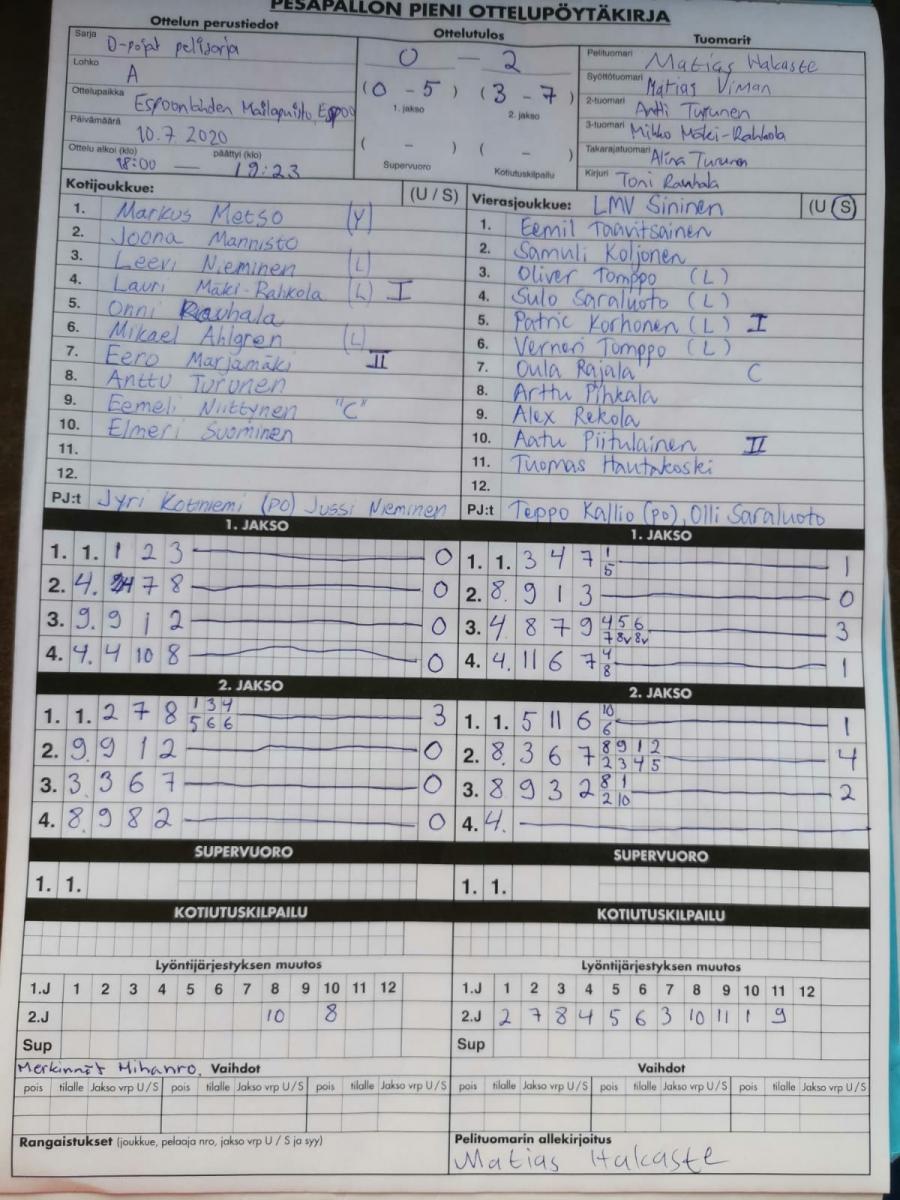 PESÄPALLON PIENI OTTELUPÖYTÄKIRJA
Ottelun perustiedot
Sarja D-pojat pelisarja
Lohko A
Ottelupaikka Espoonlahden Mailapuisto, Espoo
Päivämäärä 10.7.2020
Ottelu alkoi (klo) päättyi (klo)
18:00 — 19:23
Ottelutulos
0 — 2
(0 - 5) (3 - 7)
1. jakso 2. jakso
( - ) ( - )
Supervuoro Kotiutuskilpailu
Tuomarit
Pelituomari Matias Hakaste
Syöttötuomari Matias Viman
2-tuomari Antti Turunen
3-tuomari Mikko Mäki-Rahkola
Takarajatuomari Alina Turunen
Kirjuri Toni Rauhala
Kotijoukkue: (U / S)
1. Markus Metso (Y)
2. Joona Männistö
3. Leevi Nieminen (L)
4. Lauri Mäki-Rahkola (L) I
5. Onni Rauhala
6. Mikael Ahlgren (L)
7. Eero Marjamäki II
8. Anttu Turunen
9. Eemeli Niittynen "C"
10. Elmeri Suominen
11.
12.
PJ:t Jyri Kotniemi (PO) Jussi Nieminen
Vierasjoukkue: LMV Sininen (U S)
1. Eemil Taavitsainen
2. Samuli Koljonen
3. Oliver Tomppo (L)
4. Sulo Saraluoto (L)
5. Patric Korhonen (L) I
6. Verneri Tomppo (L)
7. Oula Rajala C
8. Arttu Pihkala
9. Alex Rekola
10. Aatu Piitulainen II
11. Tuomas Hautakoski
12.
PJ:t Teppo Kallio (po), Olli Saraluoto
1. JAKSO
1. 1. 1 2 3 0
2. 4. 7 8 0
3. 9. 9 1 2 0
4. 4. 4 10 8 0
1. JAKSO
1. 1. 3 4 7 1 1
5
2. 8. 9 1 3 0
3. 4 8 7 9 4 5 6 3
7 8v 8v
4. 4. 11 6 7 4 1
8
2. JAKSO
1. 1. 2 7 8 1 3 4 3
5 6 6
2. 9. 9 1 2 0
3. 3. 3 6 7 0
4. 8. 9 8 2 0
2. JAKSO
1. 1. 5 11 6 10 1
6
2. 8. 3 6 7 8 9 1 2 4
2 3 4 5
3. 8 9 3 2 8 1 2
2 10
4. 4.
SUPERVUORO
1. 1.
SUPERVUORO
1. 1.
KOTIUTUSKILPAILU
KOTIUTUSKILPAILU
Lyöntijärjestyksen muutos
1.J 1 2 3 4 5 6 7 8 9 10 11 12
2.J 10 8
Sup
Lyöntijärjestyksen muutos
1.J 1 2 3 4 5 6 7 8 9 10 11 12
2.J 2 7 8 4 5 6 3 10 11 1 9
Sup
Merkinnät Mihanro. Vaihdot
pois tilalle Jakso vrp U / S pois tilalle Jakso vrp U / S pois tilalle Jakso vrp U / S
Vaihdot
pois tilalle Jakso vrp U / S pois tilalle Jakso vrp U / S pois tilalle Jakso vrp U / S
Rangaistukset (joukkue, pelaaja nro, jakso vrp U / S ja syy)
Pelituomarin allekirjoitus
Matias Hakaste